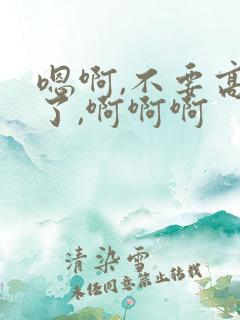 嗯啊,不要高
了,啊啊啊
清染雪
未经同意禁止转载